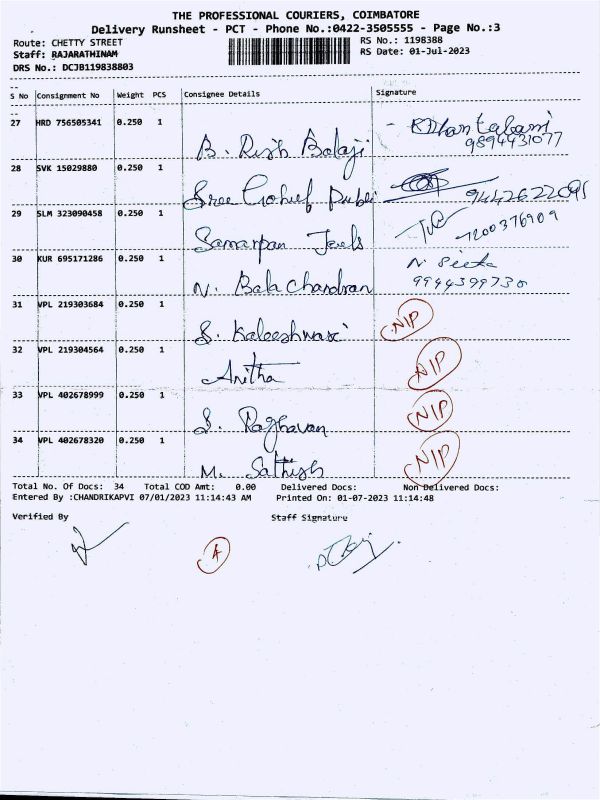 THE PROFESSIONAL COURIERS, COIMBATORE
Delivery Runsheet - PCT - Phone No.:0422-3505555 - Page No.:3
Route: CHETTY STREET RS No.: 1198388
Staff: RAJARATHINAM RS Date: 01-Jul-2023
DRS No.: DCJB119838803
S No Consignment No Weight PCS Consignee Details Signature
27 HRD 756505341 0.250 1 B. Rish Balaji 9894431077
28 SVK 15029880 0.250 1 Sree 9442622095
29 SLM 323090458 0.250 1 Samarpan Jewels 7200376909
30 KUR 695171286 0.250 1 N. Bala Chandran N. Seeta
9944399730
31 VPL 219303684 0.250 1 S. Kaleeshwari NIP
32 VPL 219304564 0.250 1 Anitha NIP
33 VPL 402678999 0.250 1 S. Raghavan NIP
34 VPL 402678320 0.250 1 M. Sathish NIP
Total No. Of Docs: 34 Total COD Amt: 0.00 Delivered Docs: Non Delivered Docs:
Entered By :CHANDRIKAPVI 07/01/2023 11:14:43 AM Printed On: 01-07-2023 11:14:48
Verified By Staff Signature
A